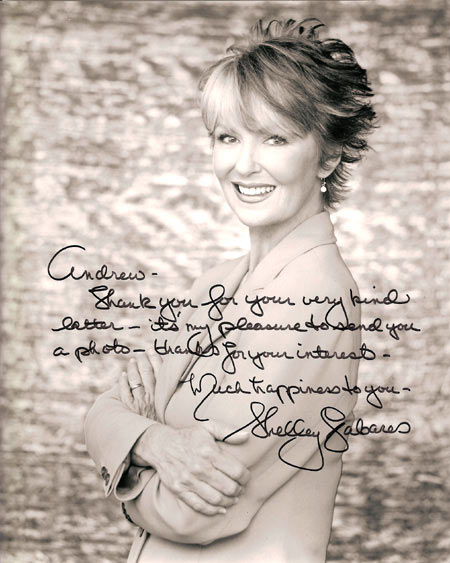 Andrew-
Thank you for your very kind
letter - it's my pleasure to send you
a photo - thanks for your interest -
Much happiness to you -
Shelley Fabares